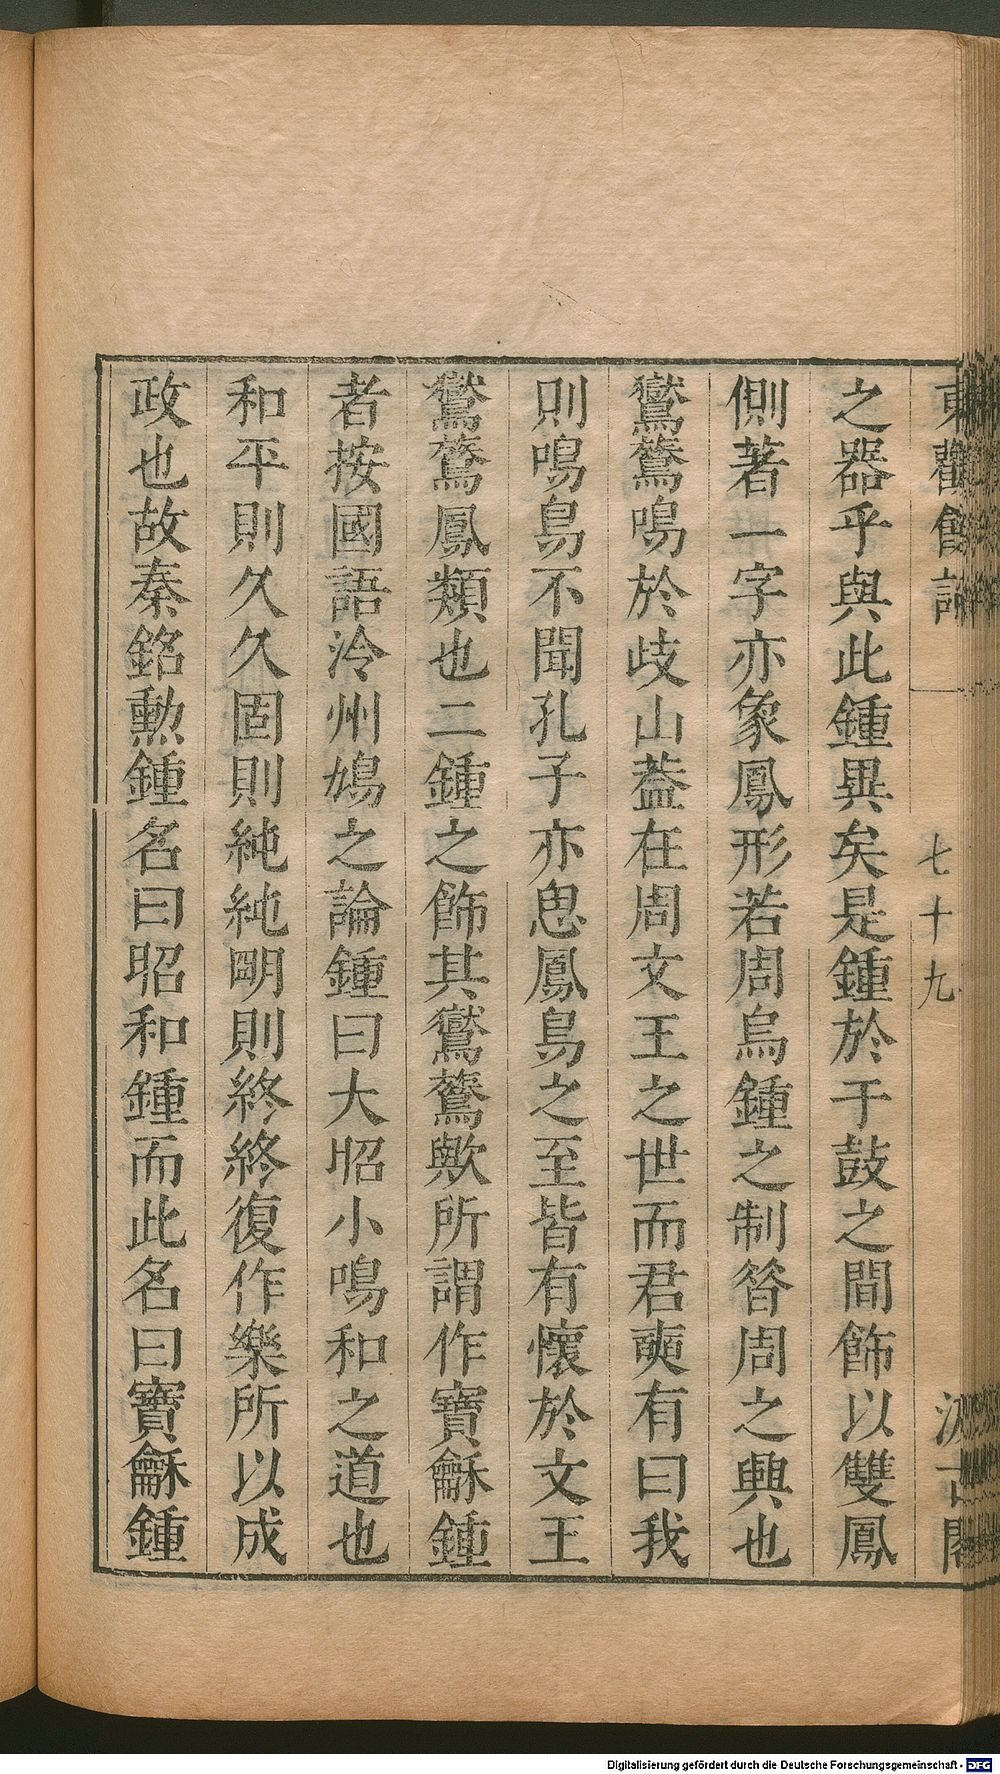 東觀餘論
七十九
汲古閣
之器乎與此鍾異矣是鍾於于鼓之間飾以雙鳳
側著一字亦象鳳形若周烏鍾之制昝周之興也
鸑鷟鳴於歧山葢在周文王之世而君奭有曰我
則鳴鳥不聞孔子亦恖鳳鳥之至皆有懷於文王
鸑鷟鳳類也二鍾之飾其鸑鷟歟所謂作寶龢鍾
者按國語泠州鳩之論鍾曰大昭小鳴和之道也
和平則久久固則純純明則終終復作樂所以成
政也故秦銘勲鍾名曰昭和鍾而此名曰寶龢鍾
Digitalisierung gefördert durch die Deutsche Forschungsgemeinschaft - DFG